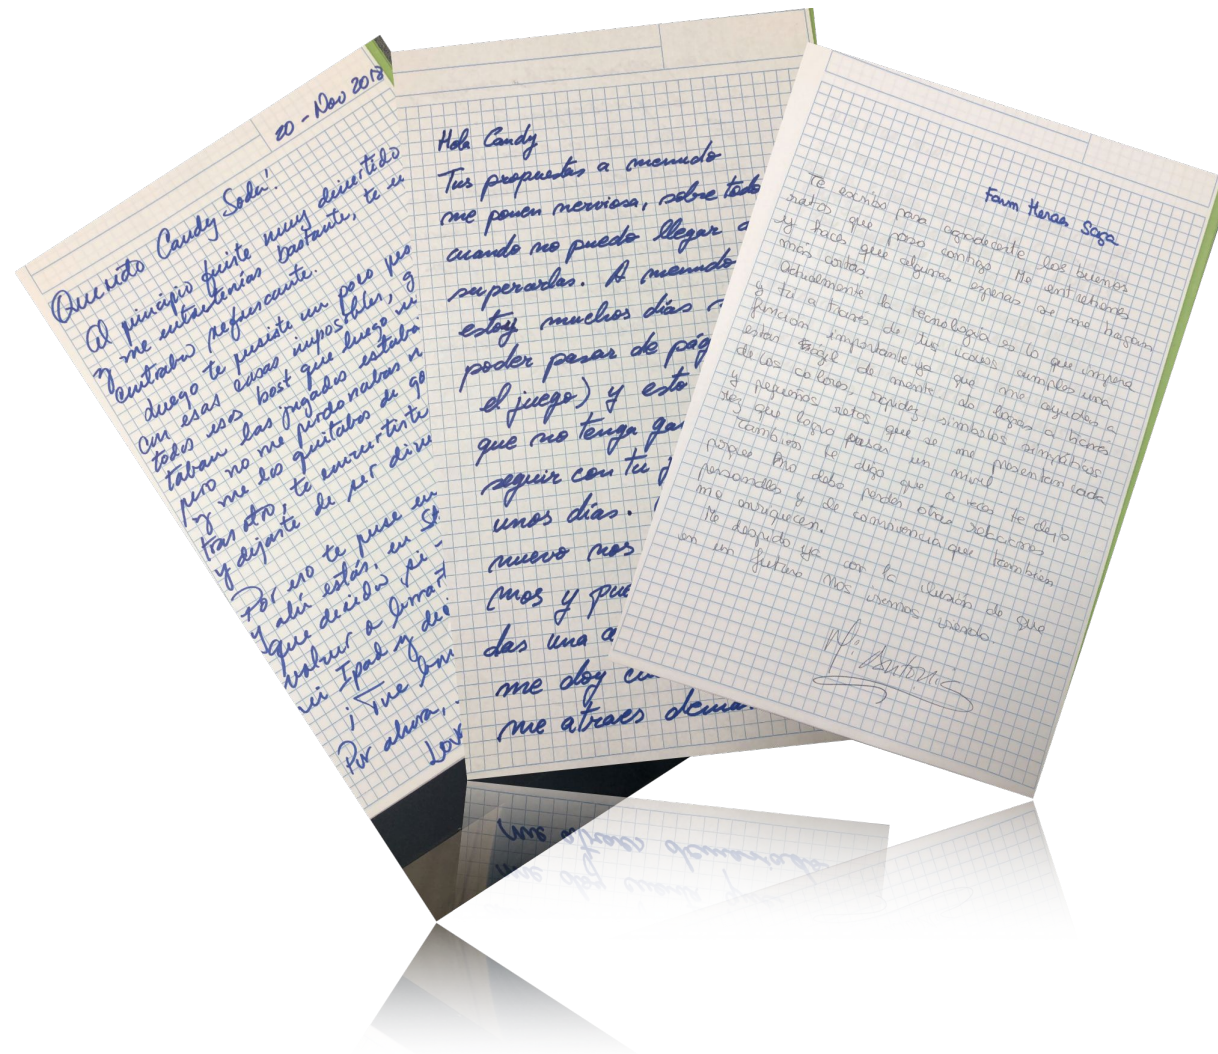 20 - Nov 2018
Querido Candy Soda!
Al principio fuiste muy divertido
y me entretenías bastante, te en
contraba refrescante.
Luego te pusiste un poco pes
con esas cosas imposibles, y
todos esos bost que luego me
taban las jugadas estaba
pero no me perdonabas n
y me los quitabas de go
tras otro, te convertiste
y dejaste de ser dive
Por eso te puse en
y ahí estás, en
que decida si
volver a
mi Ipad y
¡
Por ahora,
Love
Hola Candy
Tus propuestas a menudo
me ponen nerviosa, sobre todo
cuando no puedo llegar a
superarlas. A menudo
estoy muchos días s
poder pasar de pág
el juego) y esto
que no tenga gan
seguir con tu j
unos días.
nuevo nos
mos y pue
das una a
me doy cu
me atraes dema
Farm Heroes Saga
Te escribo para agradecerte los buenos
ratos que paso contigo. Me entretienes
y haces que algunas esperas se me hagan
más cortas.
Actualmente la tecnología es lo que impera
y tú a través de tus cosas cumples una
función importante ya que me ayudas a
estar ágil de mente al lograr hacer
de los colores, rapidez, símbolos simpáticos
y pequeños retos que se me presentan cada
vez que logro pasar un nivel.
También te digo que a veces te dejo
porque debo atender otras relaciones
personales y de convivencia que también
me enriquecen.
Me despido ya con la ilusión de que
en un futuro nos iremos viendo
Mª Antonia